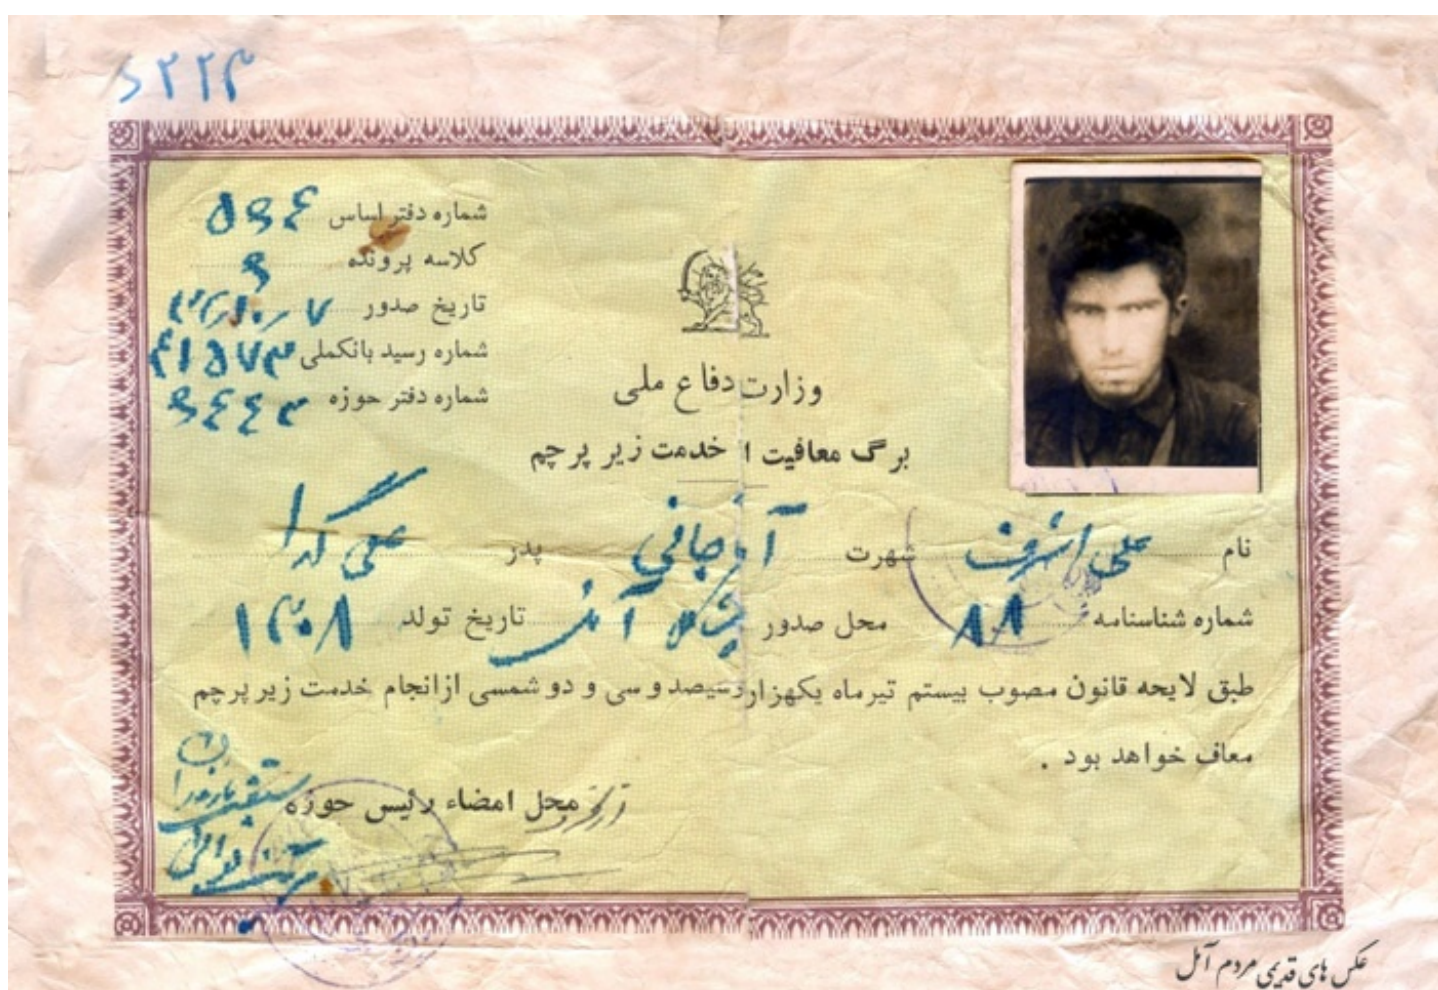 ۶۲۲۳
شماره دفتر اساس ۵۶۴
کلاسه پرونده ۶
تاریخ صدور
شماره رسید بانکملی ۴۱۵۷۳
شماره دفتر حوزه ۶۴۴۳
وزارت دفاع ملی
برگ معافیت ا خدمت زیر پرچم
نام علی اشرف شهرت پدر علی گدا
شماره شناسنامه ۸۸ محل صدور آمل تاریخ تولد ۱۳۰۸
طبق لایحه قانون مصوب بیستم تیرماه یکهزار وسیصد و سی و دو شمسی از انجام خدمت زیر پرچم
معاف خواهد بود .
محل امضاء رئیس حوزه
عکس های قدیمی مردم آمل